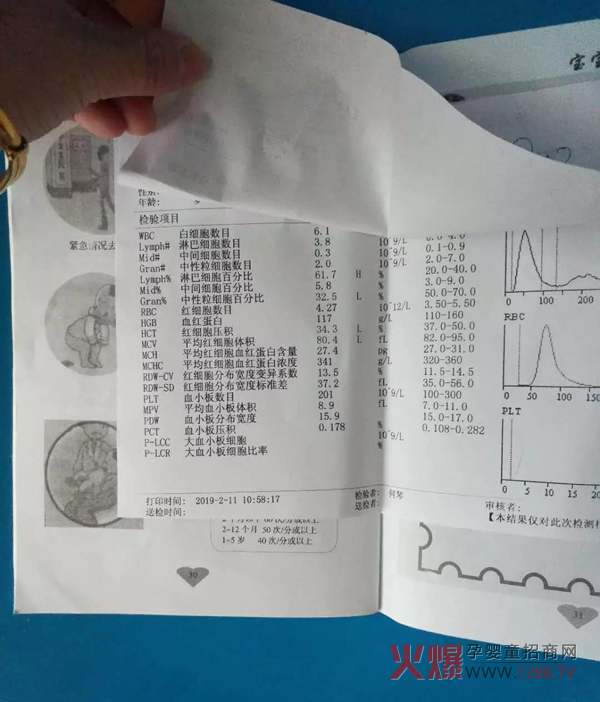 宝宝
紧急情况去
年龄: 岁
检验项目
WBC 白细胞数目 6.1 10^9/L
Lymph# 淋巴细胞数目 3.8 10^9/L 0.8-4.0
Mid# 中间细胞数目 0.3 0.1-0.9
Gran# 中性粒细胞数目 2.0 2.0-7.0
Lymph% 淋巴细胞百分比 61.7 H % 20.0-40.0
Mid% 中间细胞百分比 5.8 % 3.0-9.0
Gran% 中性粒细胞百分比 32.5 L % 50.0-70.0
RBC 红细胞数目 4.27 10^12/L 3.50-5.50
HGB 血红蛋白 117 g/L 110-160
HCT 红细胞压积 34.3 L % 37.0-50.0
MCV 平均红细胞体积 80.4 L fL 82.0-95.0
MCH 平均红细胞血红蛋白含量 27.4 pg 27.0-31.0
MCHC 平均红细胞血红蛋白浓度 341 g/L 320-360
RDW-CV 红细胞分布宽度变异系数 13.5 % 11.5-14.5
RDW-SD 红细胞分布宽度标准差 37.2 fL 35.0-56.0
PLT 血小板数目 201 10^9/L 100-300
MPV 平均血小板体积 8.9 fL 7.0-11.0
PDW 血小板分布宽度 15.9 15.0-17.0
PCT 血小板压积 0.178 % 0.108-0.282
P-LCC 大血小板细胞 10^9/L
P-LCR 大血小板细胞比率 %
0 100 200
RBC
0 50 100 150
PLT
0 5 10 15 20
打印时间: 2019-2-11 10:58:17 检验者: 何琴 审核者:
送检时间: 送检者: 【本结果仅对此次检测样
2-12个月 50次/分或以上
1-5岁 40次/分或以上
30
31
火爆孕婴童招商网
www.1288.TV